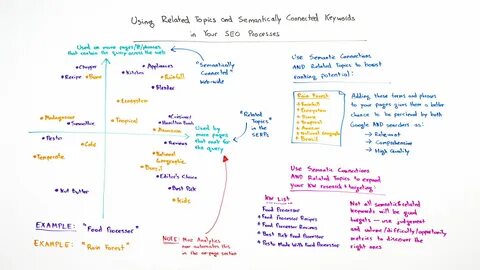 Using Related Topics and Semantically Connected Keywords
in Your SEO Processes
Used on more pages/
that contain the query across the web
Chopper
Appliances
Kitchen
Recipe
Biome
Rainfall
Blender
"Semantically
Connected"
Web-wide
Ecosystem
Madagascar
Smoothie
Tropical
Cuisinart
Hamilton Beach
Amazon
"Related
Topics"
in the
SERPs
Pesto
Cafe
Reviews
Used by
more pages
that rank for
the query
Temperate
National
Geographic
Brazil
Editor's Choice
Nut Butter
Best Pick
Kids
EXAMPLE: "Food Processor"
EXAMPLE: "Rain Forest"
NOTE: Moz Analytics
now automates this
in the on-page section
Use Semantic Connections
AND Related Topics to boost
ranking potential:
Rain Forest
Rainfall
Ecosystem
Biome
Tropical
Amazon
National Geographic
Brazil
Adding these terms and phrases
to your pages gives them a better
chance to be perceived by both
Google AND searchers as:
→ Relevant
→ Comprehensive
→ High Quality
Use Semantic Connections
AND Related Topics to expand
your KW research + targeting:
KW List
Food Processor
Food Processor Recipes
Food Processor Reviews
Best Pick Food Processor
Pesto Made With Food Processor
Not all semantic/related
keywords will be good
targets — use judgement
and volume/difficulty/opportunity
metrics to discover the
right ones